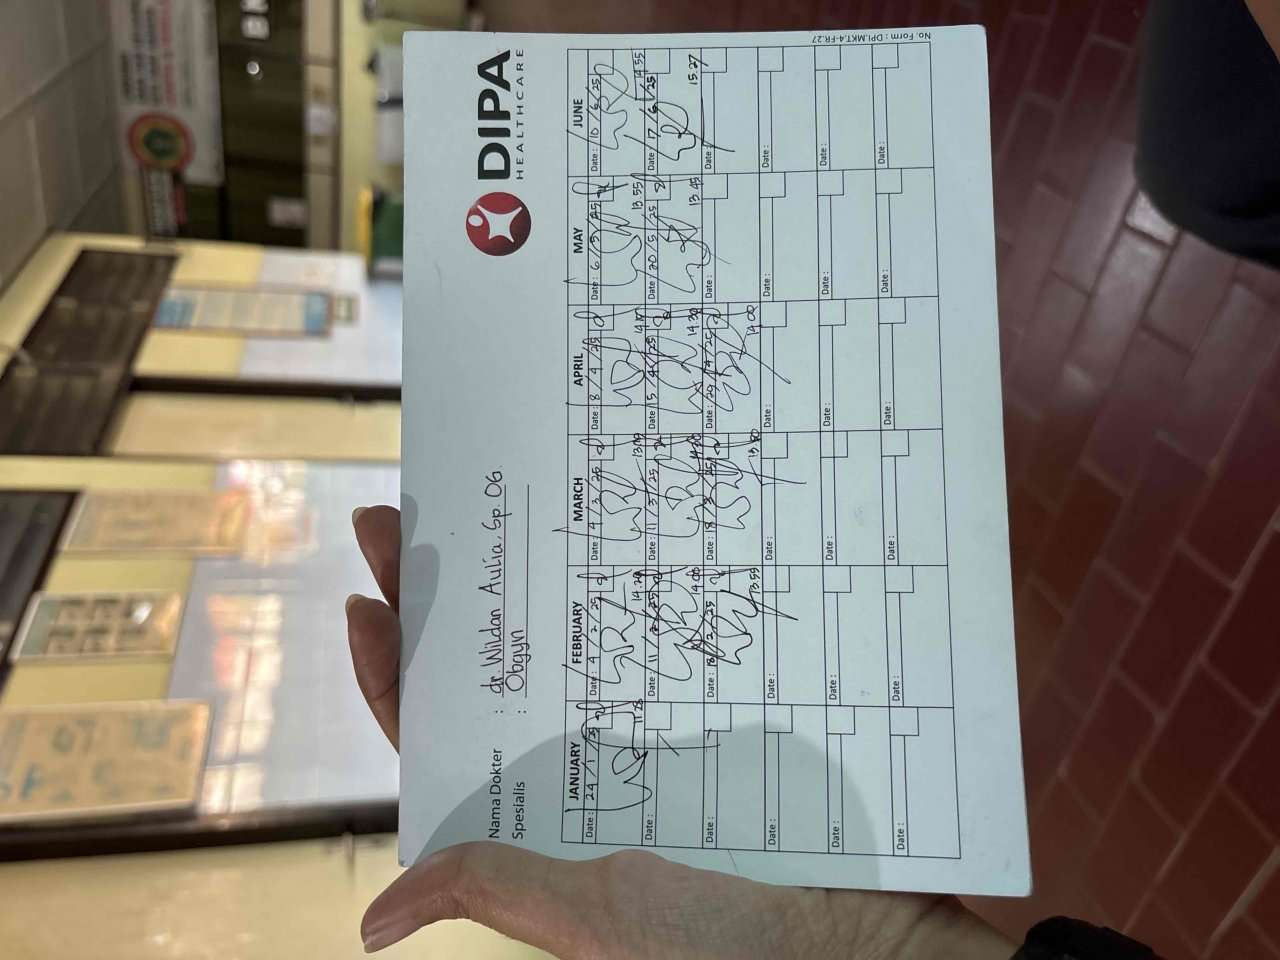 DIPA
HEALTHCARE
Nama Dokter : dr. Wildan Aulia, Sp. OG.
Spesialis : Obgyn
JANUARY FEBRUARY MARCH APRIL MAY JUNE
Date: 24/1/25 Date: 4/2/25 Date: 4/3/25 Date: 8/4/25 Date: 6/5/25 Date: 10/6/25
11.25 14.20 13.55 14.55
Date: Date: 11/2/25 Date: 11/3/25 Date: 15/4/25 Date: 20/5/25 Date: 17/6/25
14.00 14.30 13.45 15.27
Date: Date: 18/2/25 Date: 18/3/25 Date: 29/4/25 Date: Date:
13.55 14.00
Date: Date: Date: Date: Date: Date:
Date: Date: Date: Date: Date: Date:
Date: Date: Date: Date: Date: Date:
No. Form : DPI.MKT.4-FR.27